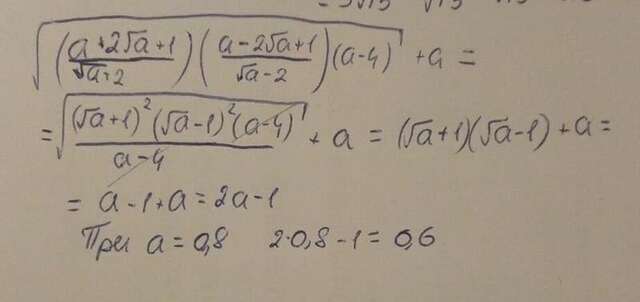 √((a+2√a+1)/(√a+2))((a-2√a+1)/(√a-2))(a-4) + a =
= √((√a+1)²(√a-1)²(a-4))/(a-4) + a = (√a+1)(√a-1) + a =
= a-1+a = 2a-1
При a = 0,8 2·0,8-1 = 0,6